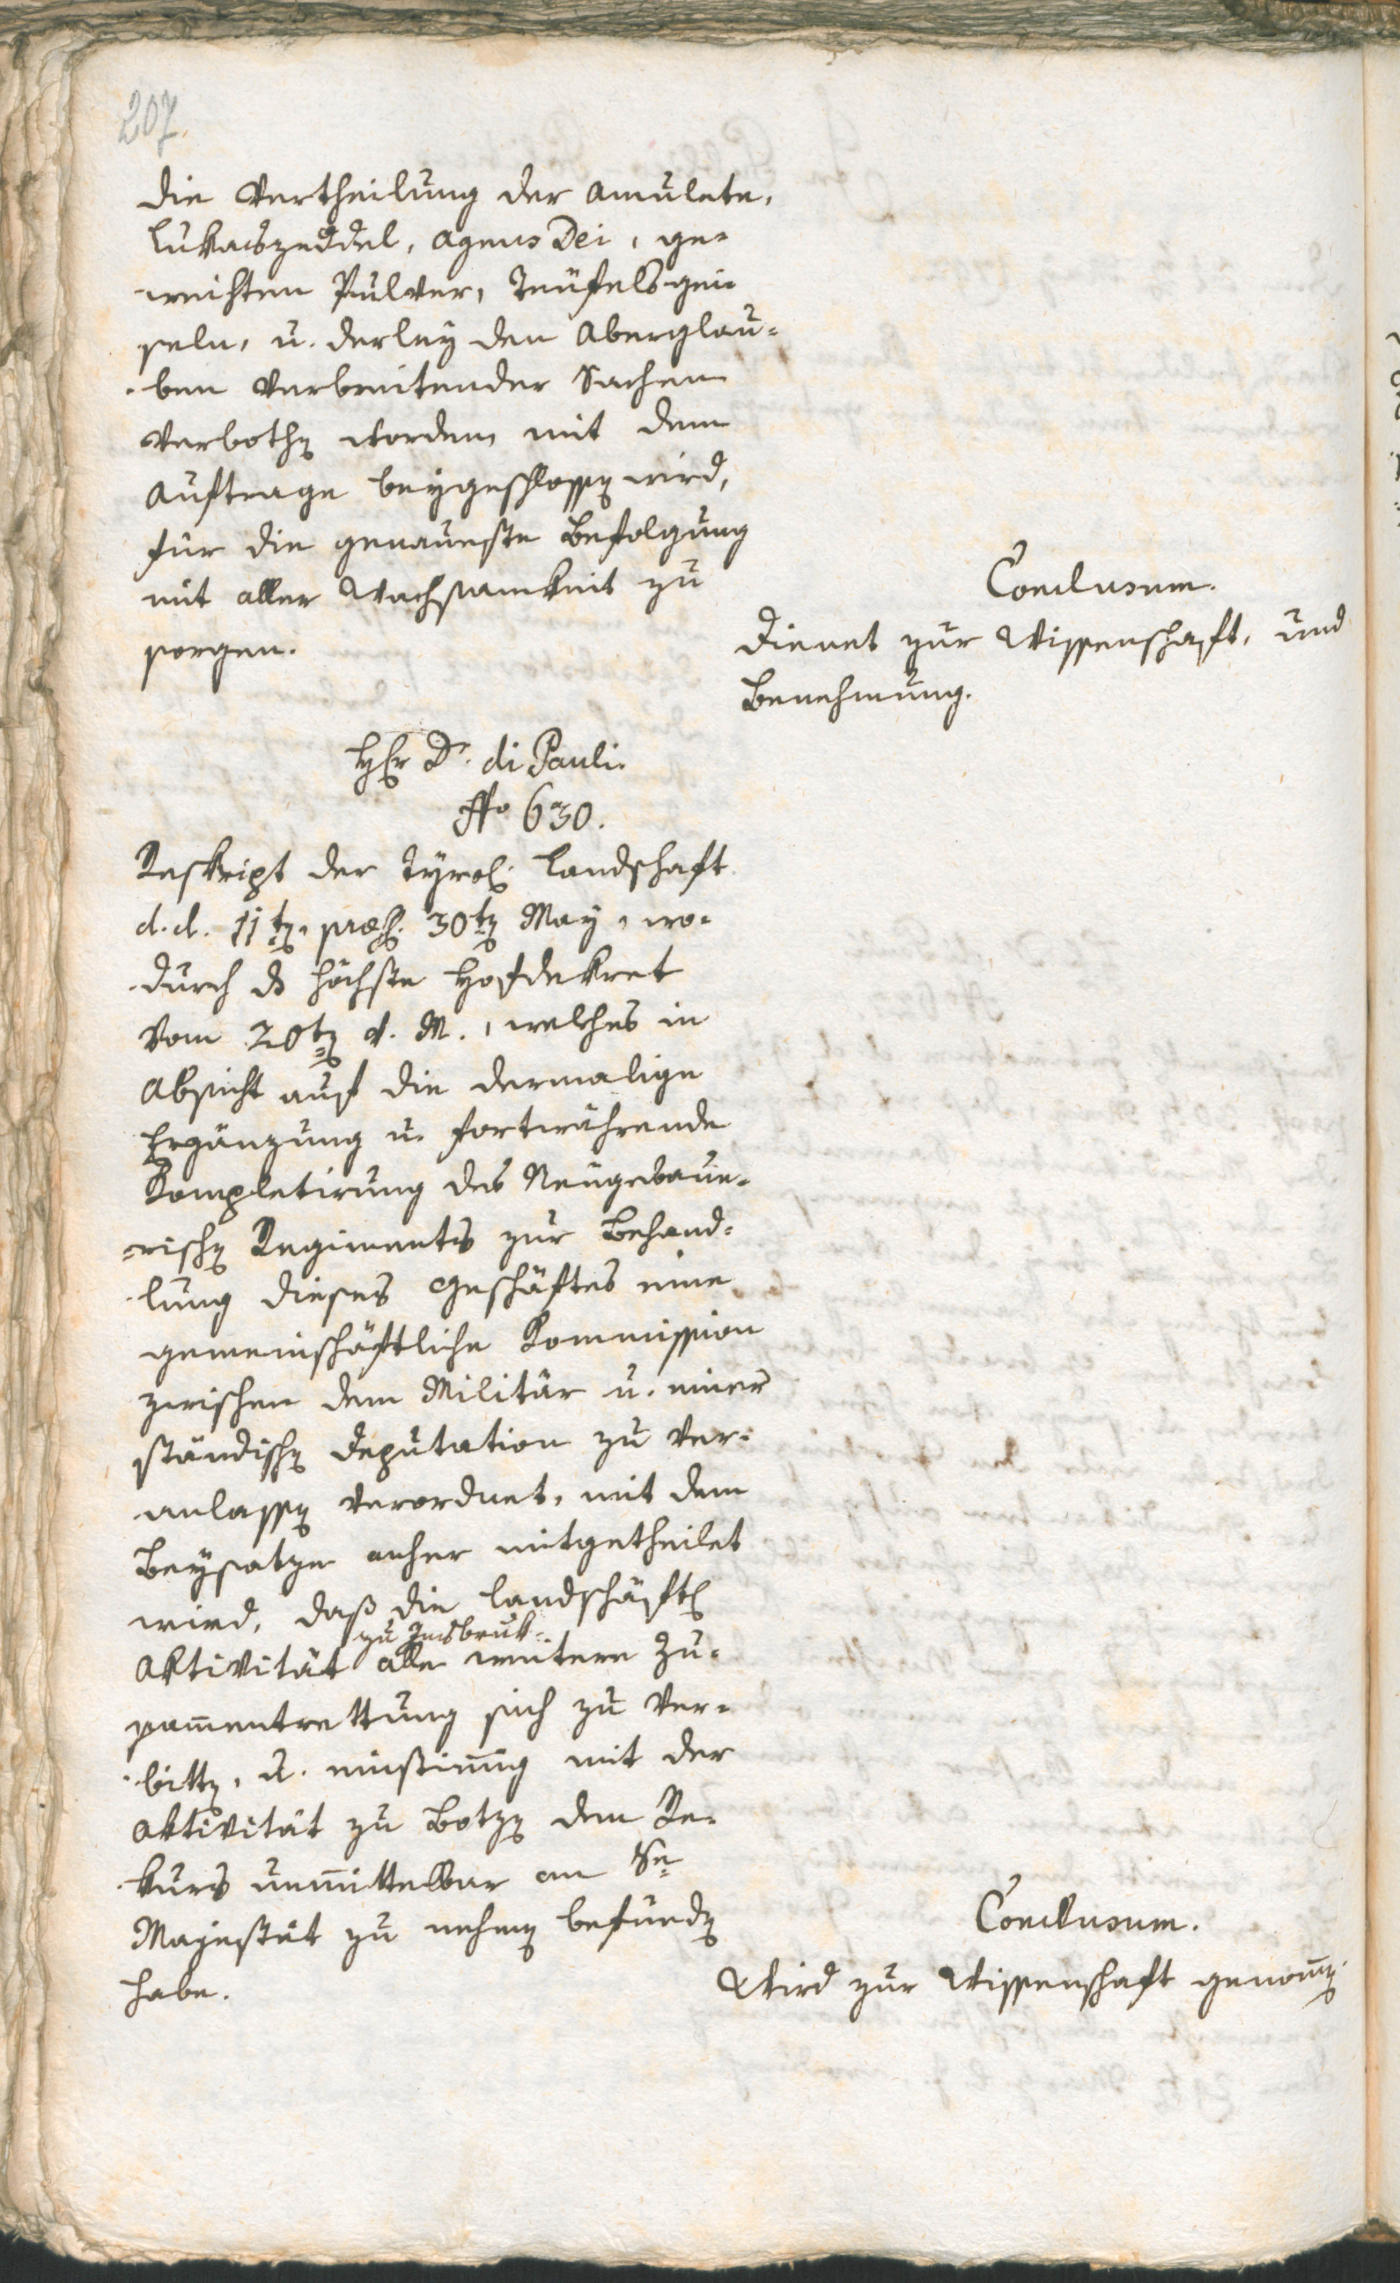 207.
die Vertheilung der Amulete,
Lukaszeddel, Agnus Dei, ge¬
weichten Pulver, Teufelsgei¬
seln, u. derley den Aberglau¬
ben verbreitender Sachen
verbothen worden, mit dem
Auftrage beygeschlossen wird,
für die genaueste Befolgung
mit aller Wachsamkeit zu
sorgen.
Conclusum.
Dienet zur Wissenschaft, und
Benehmung.
Hr Dr. di Pauli.
No 630.
Reskript der Tyrol. Landschaft
d. d. 11ten, præs. 30ten May, wo¬
durch ds höchste Hofdekret
vom 20ten v. M., welches in
Absicht auf die dermalige
Ergänzung u. fortwährende
Kompletirung des Neugebaue¬
rischen Regiments zur Behand¬
lung dieses Geschäftes eine
gemeinschäftliche Kommission
zwischen dem Militär u. einer
ständischen Deputation zu ver¬
anlassen verordnet, mit dem
Beysatze anher mitgetheilet
wird, daß die landschäftl.
zu Insbruk
Aktivität alle weitere Zu¬
sam̄entrettung sich zu ver¬
bitten, u. einstim̄ig mit der
Aktivität zu Botzen den Re¬
kurs unm̄ittelbar an Se
Majestät zu nehmen befunden
habe.
Conclusum.
Wird zur Wissenschaft genom̄en.